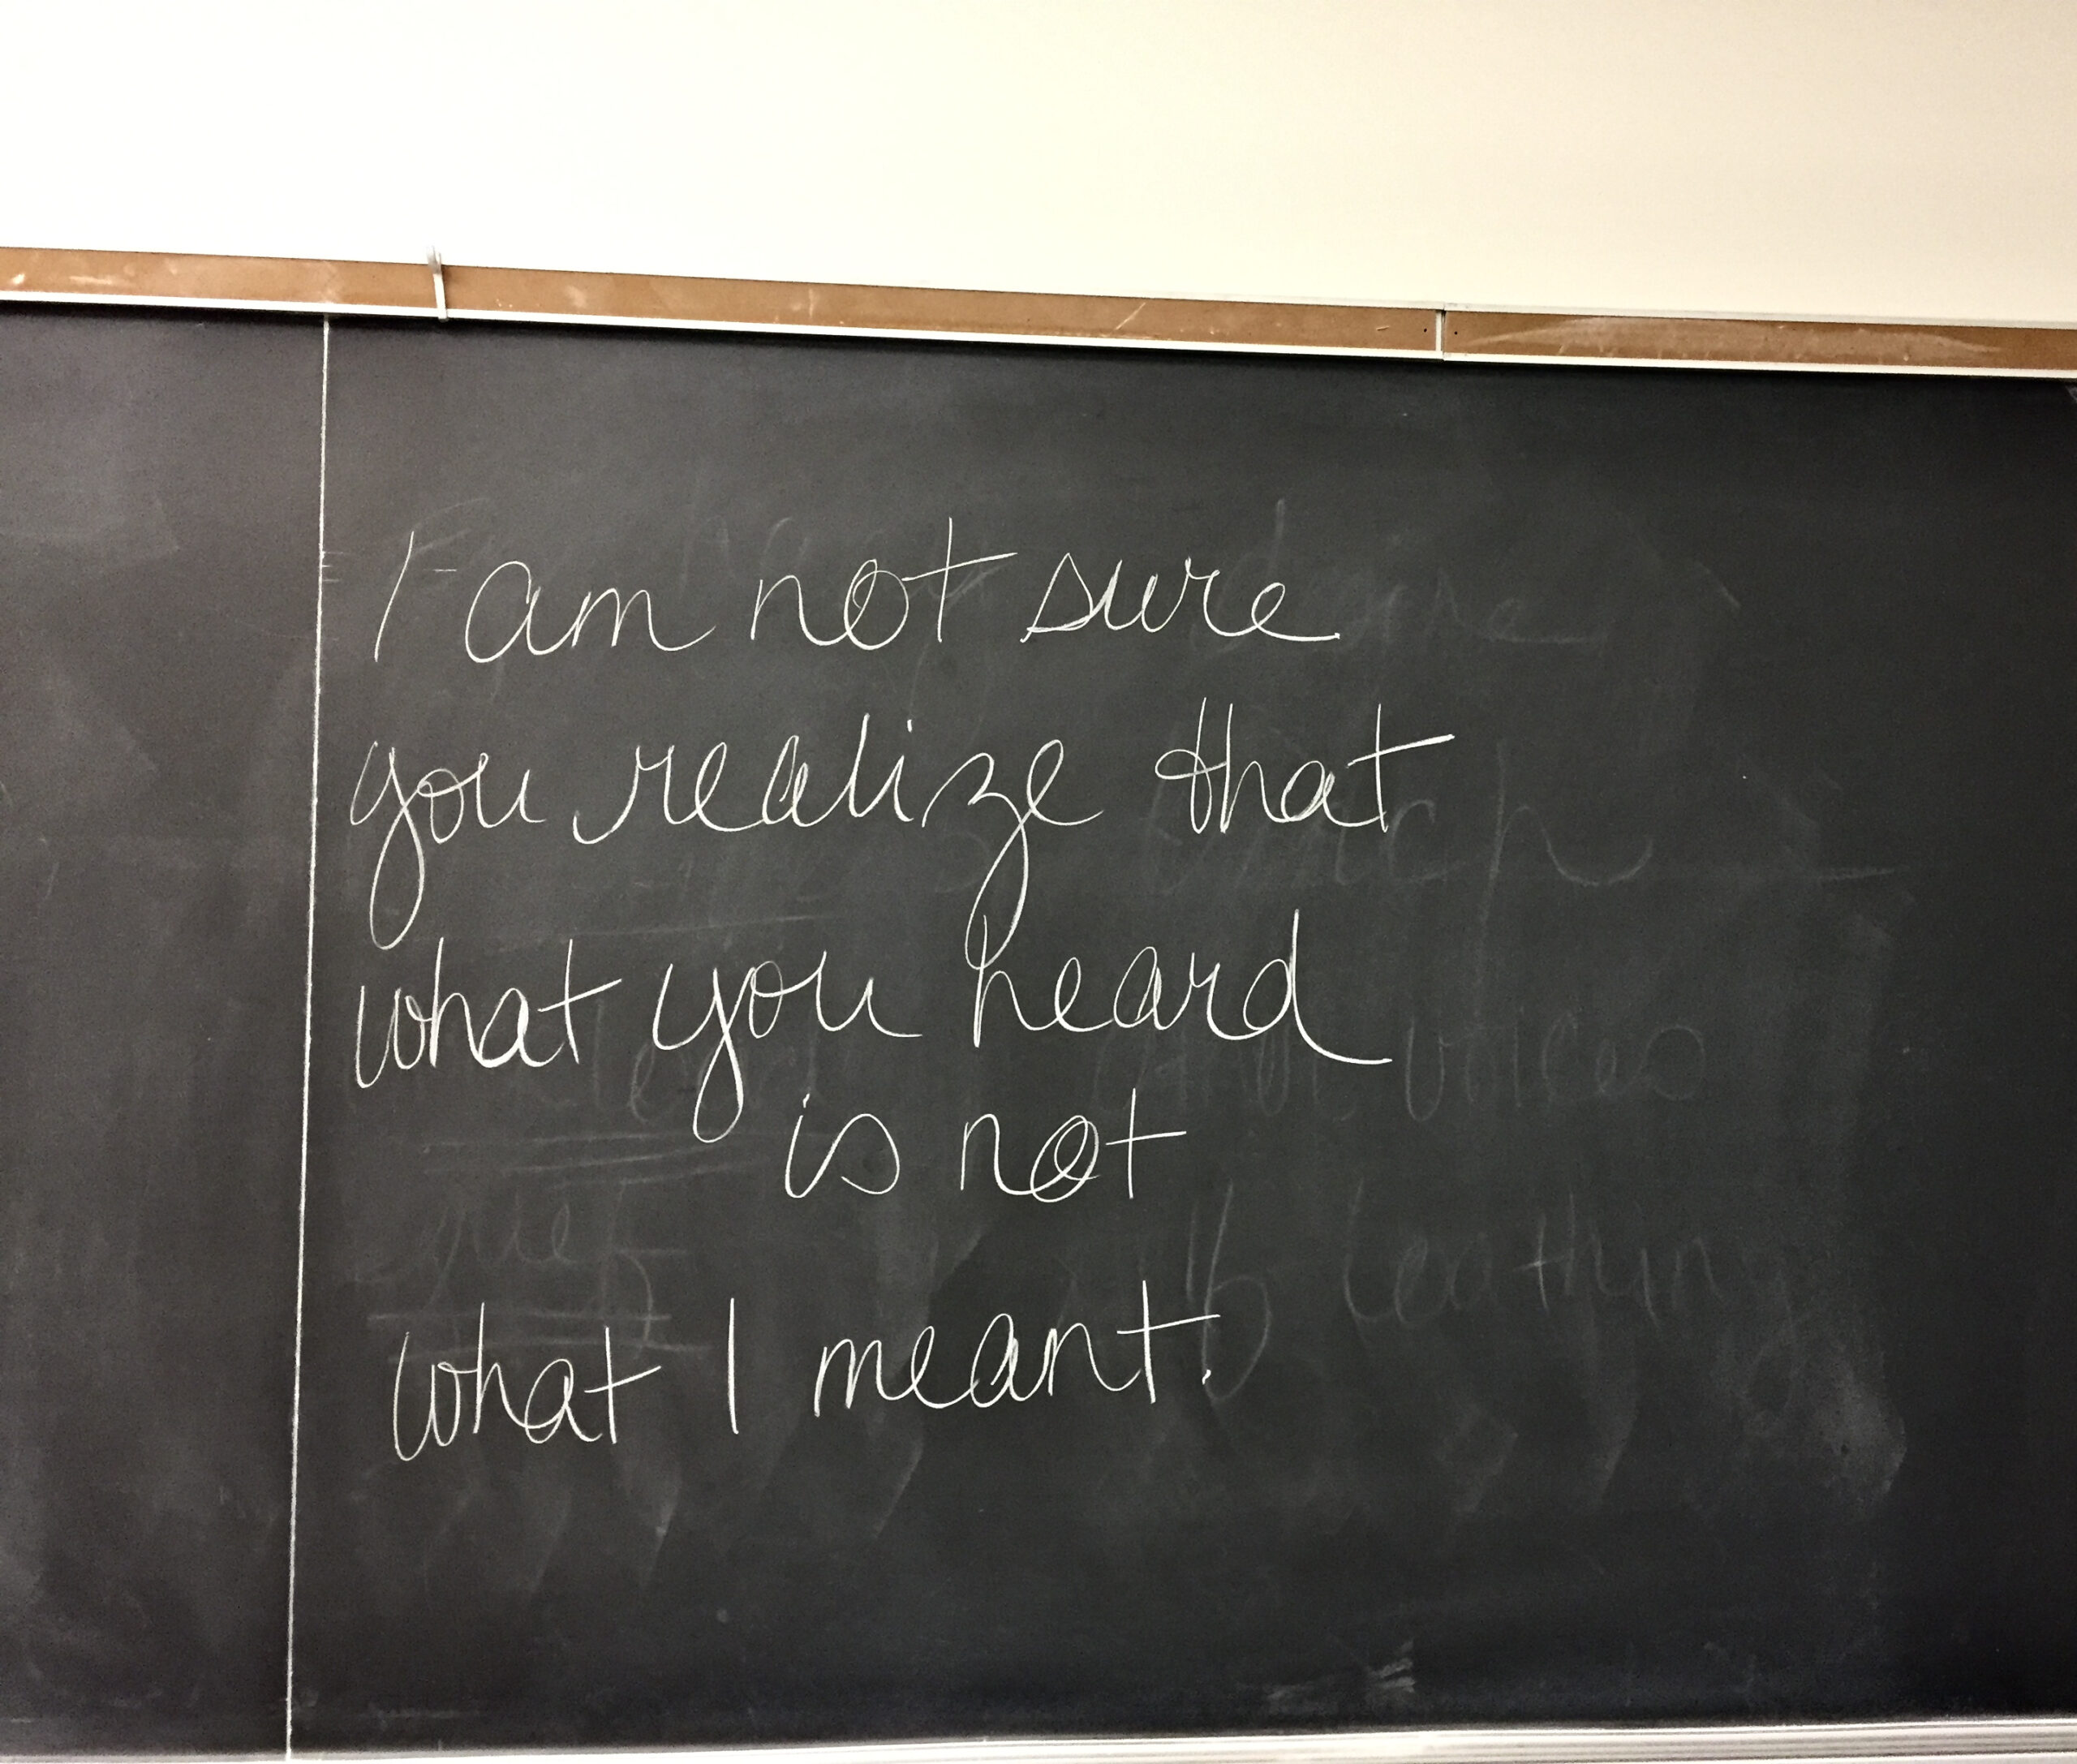 I am not sure
you realize that
what you heard
is not
what I meant.